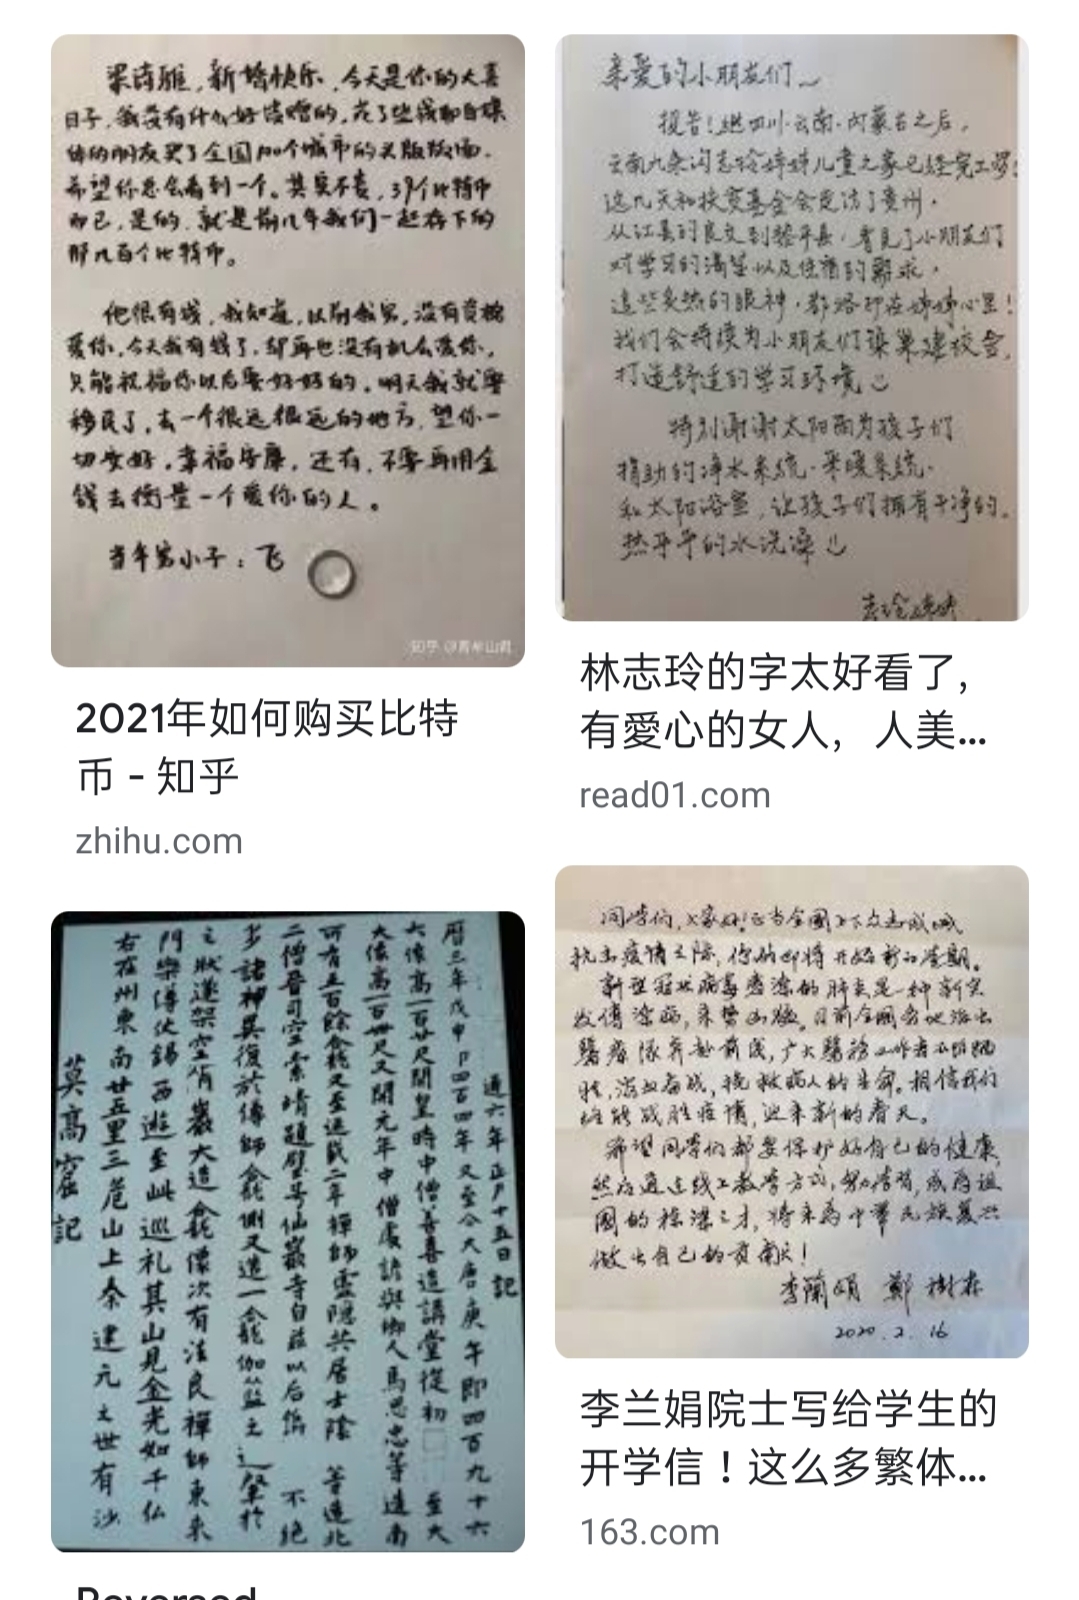 梁诗雅，新婚快乐，今天是你的大喜
日子，我没有什么好送赠的，花了些钱和自媒
体的朋友买了全国100个城市的头版版面，
希望你总会看到一个。其实不贵，39个比特币
而已，是的，就是前几年我们一起存下的
那几百个比特币。
他很有钱，我知道，以前我穷，没有资格
爱你，今天我有钱了，却再也没有机会爱你，
只能祝福你以后要好好的，明天我就要
移民了，去一个很远很远的地方，望你一
切安好，幸福安康，还有，不要再用金
钱去衡量一个爱你的人。
当年穷小子：飞
知乎 @青牟山君
2021年如何购买比特
币 - 知乎
zhihu.com
亲爱的小朋友们~
报告！继四川·云南·内蒙古之后，
云南九条沟志玲姊姊儿童之家已经完工啰！
这几天和扶贫基金会走访了贵州，
从江县的良文到黎平县，看见了小朋友们
对学习的渴望以及住宿的需求，
这些炙热的眼神，都烙印在姊姊心里！
我们会持续为小朋友们募集建校舍，
打造舒适的学习环境
特别谢谢太阳雨为孩子们
捐助的净水系统·采暖系统·
和太阳浴室，让孩子们拥有干净的，
热乎乎的水洗澡
志玲姊姊
林志玲的字太好看了，
有愛心的女人，人美...
read01.com
曆三年戊申卩四百四年又至今大唐庚午即四百九十六
六像高一百廿尺開皇時中僧善喜造講堂從初□至大
大像高一百卌尺又開元年中僧處諺與鄉人馬思忠等造南
可有五百餘龕又至延載二年禪師靈隱共居士陰 等造北
二僧晉司空索靖題壁号仙巖寺自茲以后 不絕
多諸神異復於傅師龕側又造一龕伽藍之
之狀遂架空鐫巖大造龕像次有法良禪師東來
門樂僔仗錫西遊至此巡礼其山見金光如千仏
右在州東南廿五里三危山上秦建元之世有沙
莫高窟記
同学们，大家好！正当全國上下众志成城
抗击疫情之际，你们即将开始新的学期。
新型冠状病毒感染的肺炎是一种新突
发传染病，来势凶猛，目前全国各地派出
醫療隊奔赴前线，广大醫務工作者不怕牺
牲，浴血奋战，挽救病人的生命。相信我们
终能战胜疫情，迎来新的春天。
希望同学们都要保护好自己的健康，
然后通过线上教学方式，努力读书，成为祖
國的栋梁之才，将来为中華民族复兴
做出自己的贡献！
李蘭娟 鄭樹森
2020.2.16
李兰娟院士写给学生的
开学信！这么多繁体...
163.com